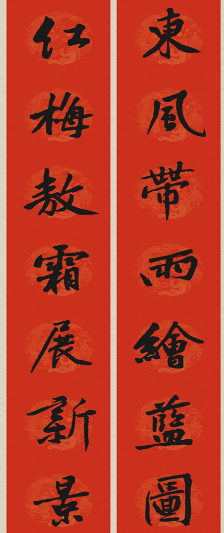 東風帶雨繪藍圖
红梅敖霜展新景